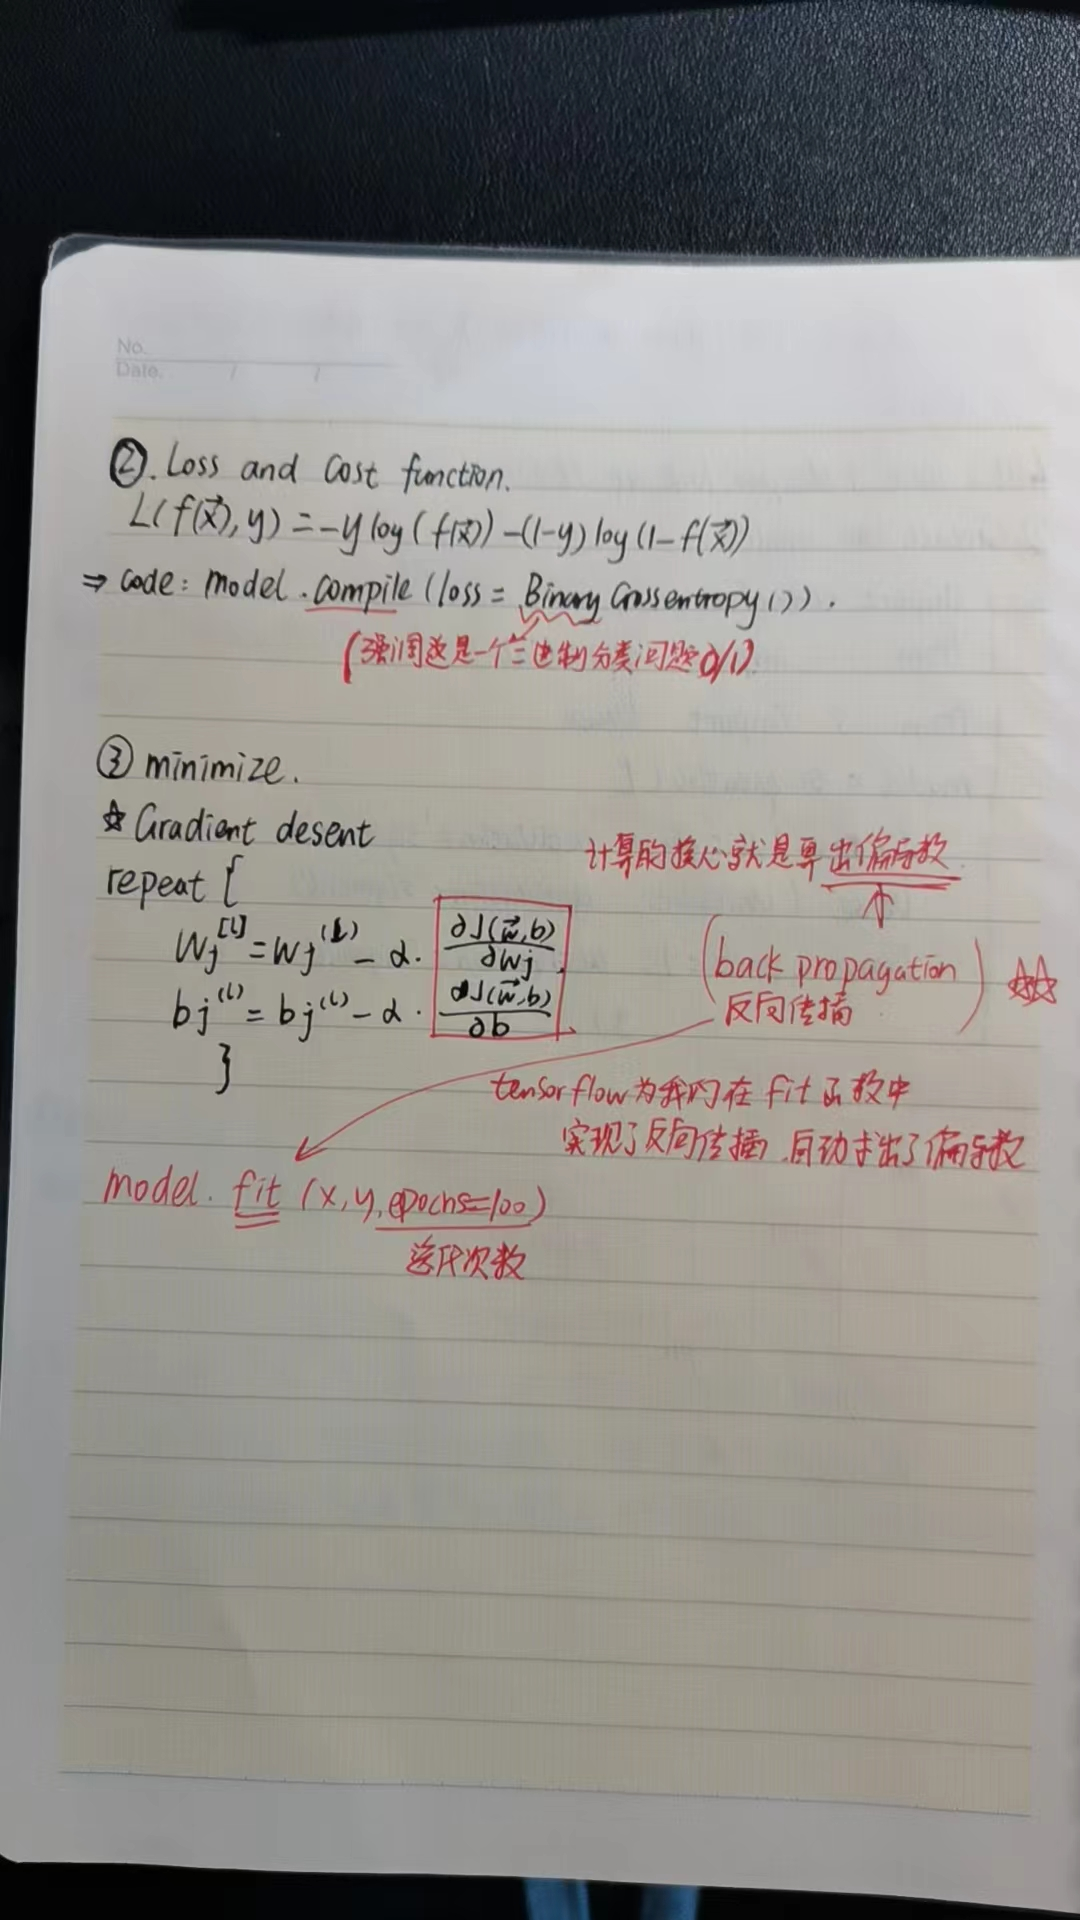 No.
Date. / /
②. Loss and cost function.
L(f(x⃗), y) = -y log(f(x⃗)) - (1-y) log(1-f(x⃗))
⇒ code: model.compile(loss = BinaryCrossentropy()).
(强调这是一个二进制分类问题 0/1)
③ minimize.
☆ Gradient desent
计算的核心就是算出偏导数
repeat {
Wj^[l] = Wj^(l) - α · ∂J(w⃗,b)/∂wj
(back propagation) ☆☆
bj^(l) = bj^(l) - α · ∂J(w⃗,b)/∂b
反向传播
}
tensorflow为我们在fit函数中
实现了反向传播,自动求出了偏导数
model.fit(x,y,epochs=100)
迭代次数